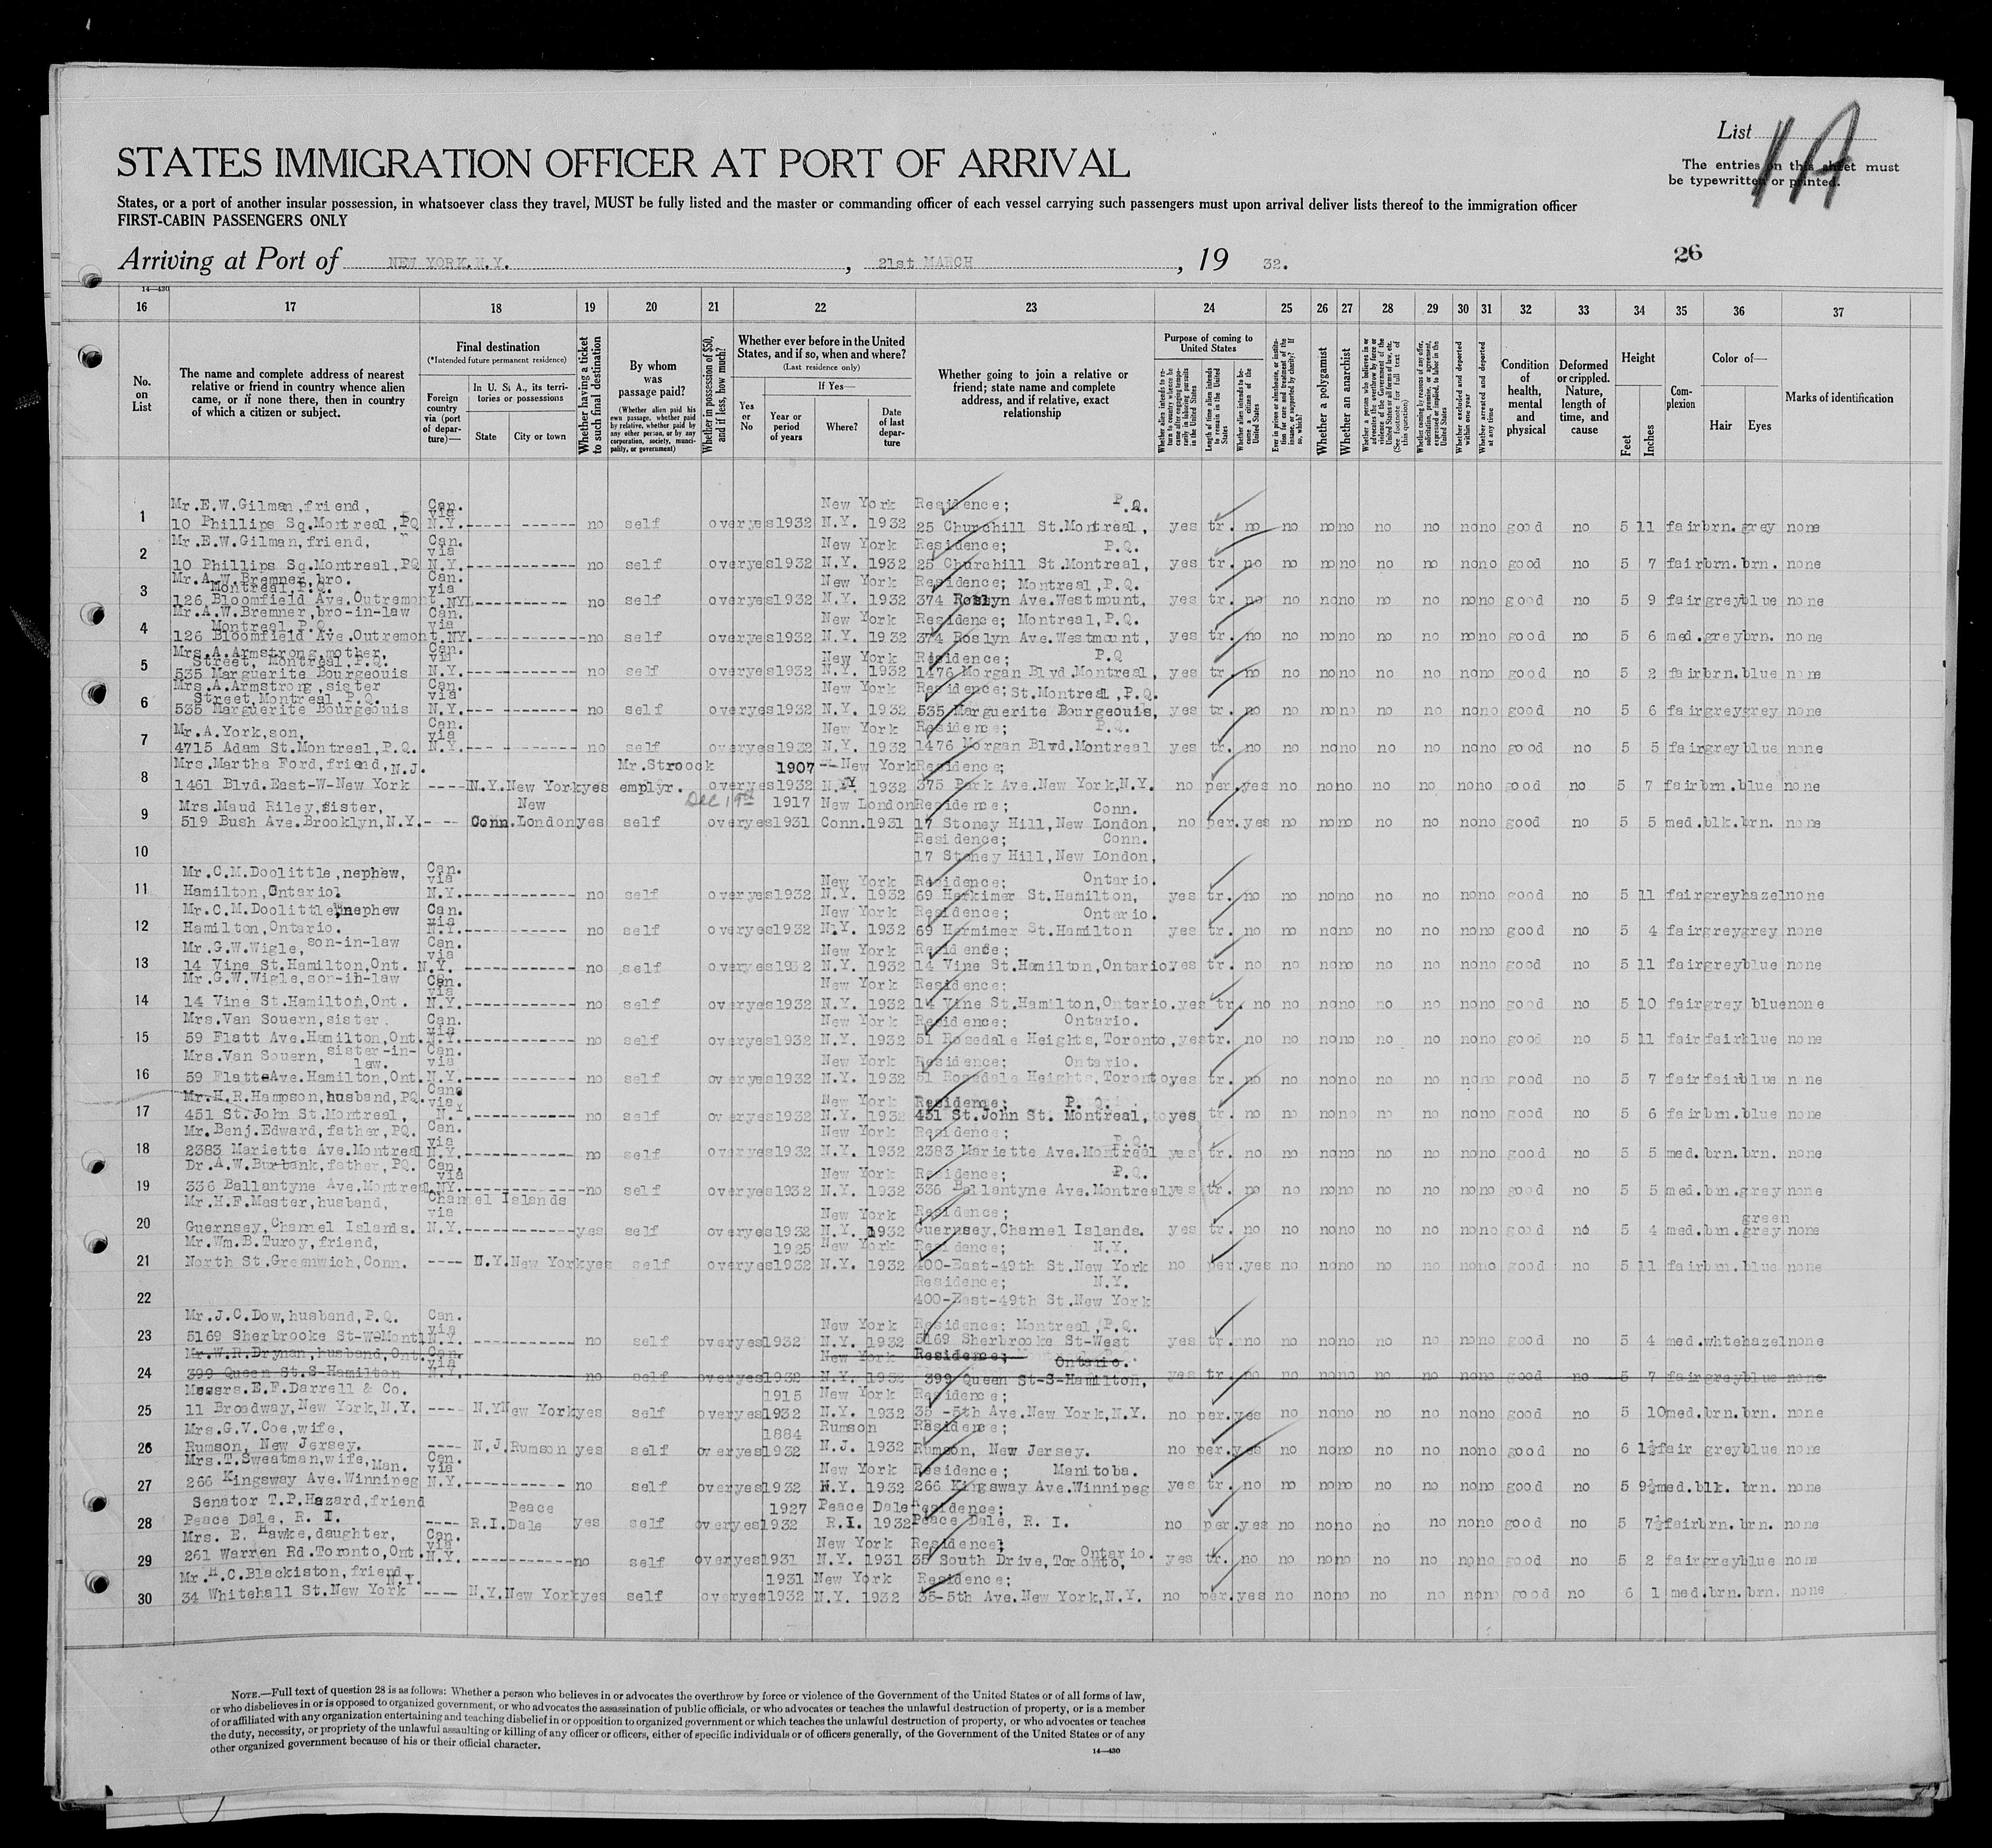 List 1A
The entries on this sheet must
be typewritten or printed.
STATES IMMIGRATION OFFICER AT PORT OF ARRIVAL
States, or a port of another insular possession, in whatsoever class they travel, MUST be fully listed and the master or commanding officer of each vessel carrying such passengers must upon arrival deliver lists thereof to the immigration officer
FIRST-CABIN PASSENGERS ONLY
Arriving at Port of NEW YORK.N.Y. , 21st MARCH , 19 32.
26
14—430
16 17 18 19 20 21 22 23 24 25 26 27 28 29 30 31 32 33 34 35 36 37
No. on List
The name and complete address of nearest relative or friend in country whence alien came, or if none there, then in country of which a citizen or subject.
Final destination
(*Intended future permanent residence)
Foreign country via (port of departure)—
In U. S. A., its territories or possessions
State
City or town
Whether having a ticket to such final destination
By whom was passage paid?
(Whether alien paid his own passage, whether paid by relative, whether paid by any other person, or by any corporation, society, municipality, or government)
Whether in possession of $50, and if less, how much?
Whether ever before in the United States, and if so, when and where?
(Last residence only)
Yes or No
If Yes—
Year or period of years
Where?
Date of last departure
Whether going to join a relative or friend; state name and complete address, and if relative, exact relationship
Purpose of coming to United States
Whether alien intends to return to country whence he came after engaging temporarily in laboring pursuits in the United States
Length of time alien intends to remain in the United States
Whether alien intends to become a citizen of the United States
Ever in prison or almshouse, or institution for care and treatment of the insane, or supported by charity? If so, which?
Whether a polygamist
Whether an anarchist
Whether a person who believes in or advocates the overthrow by force or violence of the Government of the United States or all forms of law, etc. (See footnote for full text of this question)
Whether coming by reasons of any offer, solicitation, promise, or agreement, expressed or implied, to labor in the United States
Whether excluded and deported within one year
Whether arrested and deported at any time
Condition of health, mental and physical
Deformed or crippled. Nature, length of time, and cause
Height
Feet
Inches
Complexion
Color of—
Hair
Eyes
Marks of identification
1 Mr.E.W.Gilman,friend, 10 Phillips Sq.Montreal,PQ Can. via N.Y. no self over yes 1932 New York N.Y. 1932 Residence; 25 Churchill St.Montreal, P.Q. yes tr. no no no no no no no no good no 5 11 fair brn. grey none
2 Mr.E.W.Gilman,friend, " 10 Phillips Sq.Montreal,PQ Can. via N.Y. no self over yes 1932 New York N.Y. 1932 Residence; 25 Churchill St.Montreal, P.Q. yes tr. no no no no no no no no good no 5 7 fair brn. brn. none
3 Mr.A.W.Bremner,bro. Montreal,P.Q. 126 Bloomfield Ave.Outremont Can. via .NY. no self over yes 1932 New York N.Y. 1932 Residence; Montreal,P.Q. 374 Roslyn Ave.Westmount, yes tr. no no no no no no no no good no 5 9 fair grey blue none
4 Mr.A.W.Bremner,bro-in-law Montreal,P.Q. 126 Bloomfield Ave.Outremont Can. via .NY. no self over yes 1932 New York N.Y. 1932 Residence; Montreal,P.Q. 374 Roslyn Ave.Westmount, yes tr. no no no no no no no no good no 5 6 med. grey brn. none
5 Mrs.A.Armstrong,mother, Street, Montreal,P.Q. 535 Marguerite Bourgeouis Can. via N.Y. no self over yes 1932 New York N.Y. 1932 Residence; P.Q 1476 Morgan Blvd.Montreal, yes tr. no no no no no no no no good no 5 2 fair brn. blue none
6 Mrs.A.Armstrong,sister Street,Montreal,P.Q. 535 Marguerite Bourgeouis Can. via N.Y. no self over yes 1932 New York N.Y. 1932 Residence; St.Montreal,P.Q. 535 Marguerite Bourgeouis, yes tr. no no no no no no no no good no 5 6 fair grey grey none
7 Mr.A.York,son, 4715 Adam St.Montreal,P.Q. Can. via N.Y. no self over yes 1932 New York N.Y. 1932 Residence; P.Q. 1476 Morgan Blvd.Montreal yes tr. no no no no no no no no good no 5 5 fair grey blue none
8 Mrs.Martha Ford,friend,N.J. 1461 Blvd.East-W-New York ---- N.Y. New York yes Mr.Stroock emplyr. over yes 1907 1932 New York N.Y. 1932 Residence; 375 Park Ave.New York,N.Y. no per. yes no no no no no no no good no 5 7 fair brn. blue none
Dec 19th
9 Mrs.Maud Riley,sister, 519 Bush Ave.Brooklyn,N.Y. Conn. New London yes self over yes 1917 1931 New London Conn. 1931 Residence; Conn. 17 Stoney Hill,New London, no per. yes no no no no no no no good no 5 5 med. blk. brn. none
10 Residence; Conn. 17 Stoney Hill,New London,
11 Mr.C.M.Doolittle,nephew, Hamilton,Ontario. Can. via N.Y. no self over yes 1932 New York N.Y. 1932 Residence; Ontario. 69 Herkimer St.Hamilton, yes tr. no no no no no no no no good no 5 11 fair grey hazel none
12 Mr.C.M.Doolittle,nephew Hamilton,Ontario. Can. via N.Y. no self over yes 1932 New York N.Y. 1932 Residence; Ontario. 69 Hermimer St.Hamilton yes tr. no no no no no no no no good no 5 4 fair grey grey none
13 Mr.G.W.Wigle,son-in-law 14 Vine St.Hamilton,Ont. Can. via N.Y. no self over yes 1932 New York N.Y. 1932 Residence; 14 Vine St.Hamilton,Ontario. yes tr. no no no no no no no no good no 5 11 fair grey blue none
14 Mr.G.W.Wigle,son-in-law 14 Vine St.Hamilton,Ont. Can. via N.Y. no self over yes 1932 New York N.Y. 1932 Residence; 14 Vine St.Hamilton,Ontario. yes tr. no no no no no no no no good no 5 10 fair grey blue none
15 Mrs.Van Souern,sister. 59 Flatt Ave.Hamilton,Ont. Can. via N.Y. no self over yes 1932 New York N.Y. 1932 Residence; Ontario. 51 Rosedale Heights,Toronto, yes tr. no no no no no no no no good no 5 11 fair fair blue none
16 Mrs.Van Souern,sister-in-law. 59 Flatt Ave.Hamilton,Ont. Can. via N.Y. no self over yes 1932 New York N.Y. 1932 Residence; Ontario. 51 Rosedale Heights,Toronto yes tr. no no no no no no no no good no 5 7 fair fair blue none
17 Mr.H.R.Hampson,husband,PQ. 451 St.John St.Montreal, Can. via N.Y. no self over yes 1932 New York N.Y. 1932 Residence; P. Q. 451 St.John St. Montreal, yes tr. no no no no no no no no good no 5 6 fair brn. blue none
18 Mr.Benj.Edward,father,PQ. 2383 Mariette Ave.Montreal Can. via N.Y. no self over yes 1932 New York N.Y. 1932 Residence; P.Q. 2383 Mariette Ave.Montreal yes tr. no no no no no no no no good no 5 5 med. brn. brn. none
19 Dr.A.W.Burbank,father,PQ. 336 Ballantyne Ave.Montreal Can. via .NY. no self over yes 1932 New York N.Y. 1932 Residence; P.Q. 336 Ballantyne Ave.Montreal yes tr. no no no no no no no no good no 5 5 med. brn. grey none
20 Mr.H.F.Master,husband, Guernsey,Channel Islands. Channel Islands via N.Y. yes self over yes 1932 New York N.Y. 1932 Residence; Guernsey,Channel Islands. yes tr. no no no no no no no no good no 5 4 med. brn. green grey none
21 Mr.Wm.B.Turoy,friend, North St.Greenwich,Conn. ---- N.Y. New York yes self over yes 1925 1932 New York N.Y. 1932 Residence; N.Y. 400-East-49th St.New York no per. yes no no no no no no no good no 5 11 fair brn. blue none
22 Residence; N.Y. 400-East-49th St.New York
23 Mr.J.C.Dow,husband,P.Q. 5169 Sherbrooke St-W-Montl Can. via N.Y. no self over yes 1932 New York N.Y. 1932 Residence; Montreal,P.Q. 5169 Sherbrooke St-West yes tr. no no no no no no no no good no 5 4 med. white hazel none
24 Mr.W.R.Drynan,husband,Ont. 399 Queen St.S-Hamilton Can. via N.Y. no self over yes 1932 New York N.Y. 1932 Residence; Ontario. 399 Queen St-S-Hamilton, yes tr. no no no no no no no no good no 5 7 fair grey blue none
25 Messrs.E.F.Darrell & Co. 11 Broadway,New York,N.Y. ---- N.Y New York yes self over yes 1915 1932 New York N.Y. 1932 Residence; 35 -5th Ave.New York,N.Y. no per. yes no no no no no no no good no 5 10 med. brn. brn. none
26 Mrs.G.V.Coe,wife, Rumson, New Jersey. ---- N.J. Rumson yes self over yes 1884 1932 Rumson N.J. 1932 Residence; Rumson, New Jersey. no per. yes no no no no no no no good no 6 1½ fair grey blue none
27 Mrs.T.Sweatman,wife,Man. 266 Kingsway Ave.Winnipeg Can. via N.Y. no self over yes 1932 New York N.Y. 1932 Residence; Manitoba. 266 Kingsway Ave.Winnipeg yes tr. no no no no no no no no good no 5 9½ med. blk. brn. none
28 Senator T.P.Hazard,friend Peace Dale, R. I. ---- R.I. Peace Dale yes self over yes 1927 1932 Peace Dale R.I. 1932 Residence; Peace Dale, R. I. no per. yes no no no no no no no good no 5 7½ fair brn. brn. none
29 Mrs. E. Hawke,daughter, 261 Warren Rd.Toronto,Ont. Can. via N.Y. no self over yes 1931 New York N.Y. 1931 Residence; Ontario. 35 South Drive,Toronto, yes tr. no no no no no no no no good no 5 2 fair grey blue none
30 Mr.H.C.Blackiston,friend, N.Y. 34 Whitehall St.New York ---- N.Y. New York yes self over yes 1931 1932 New York N.Y. 1932 Residence; 35-5th Ave.New York,N.Y. no per. yes no no no no no no no good no 6 1 med. brn. brn. none
NOTE.—Full text of question 28 is as follows: Whether a person who believes in or advocates the overthrow by force or violence of the Government of the United States or of all forms of law,
or who disbelieves in or is opposed to organized government, or who advocates the assassination of public officials, or who advocates or teaches the unlawful destruction of property, or is a member
of or affiliated with any organization entertaining and teaching disbelief in or opposition to organized government or which teaches the unlawful destruction of property, or who advocates or teaches
the duty, necessity, or propriety of the unlawful assaulting or killing of any officer or officers, either of specific individuals or of officers generally, of the Government of the United States or of any
other organized government because of his or their official character.
14—430